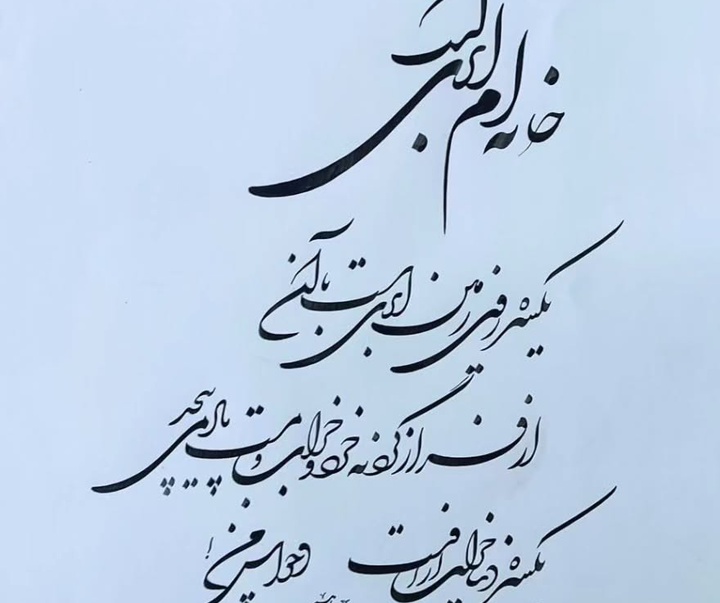 خانه ام ابریست
یکسره روی زمین ابریست با آن
از فراز گردنه خرد و خراب و مست باد میپیچد
یکسره دنیا خراب از اوست
و حواس من!